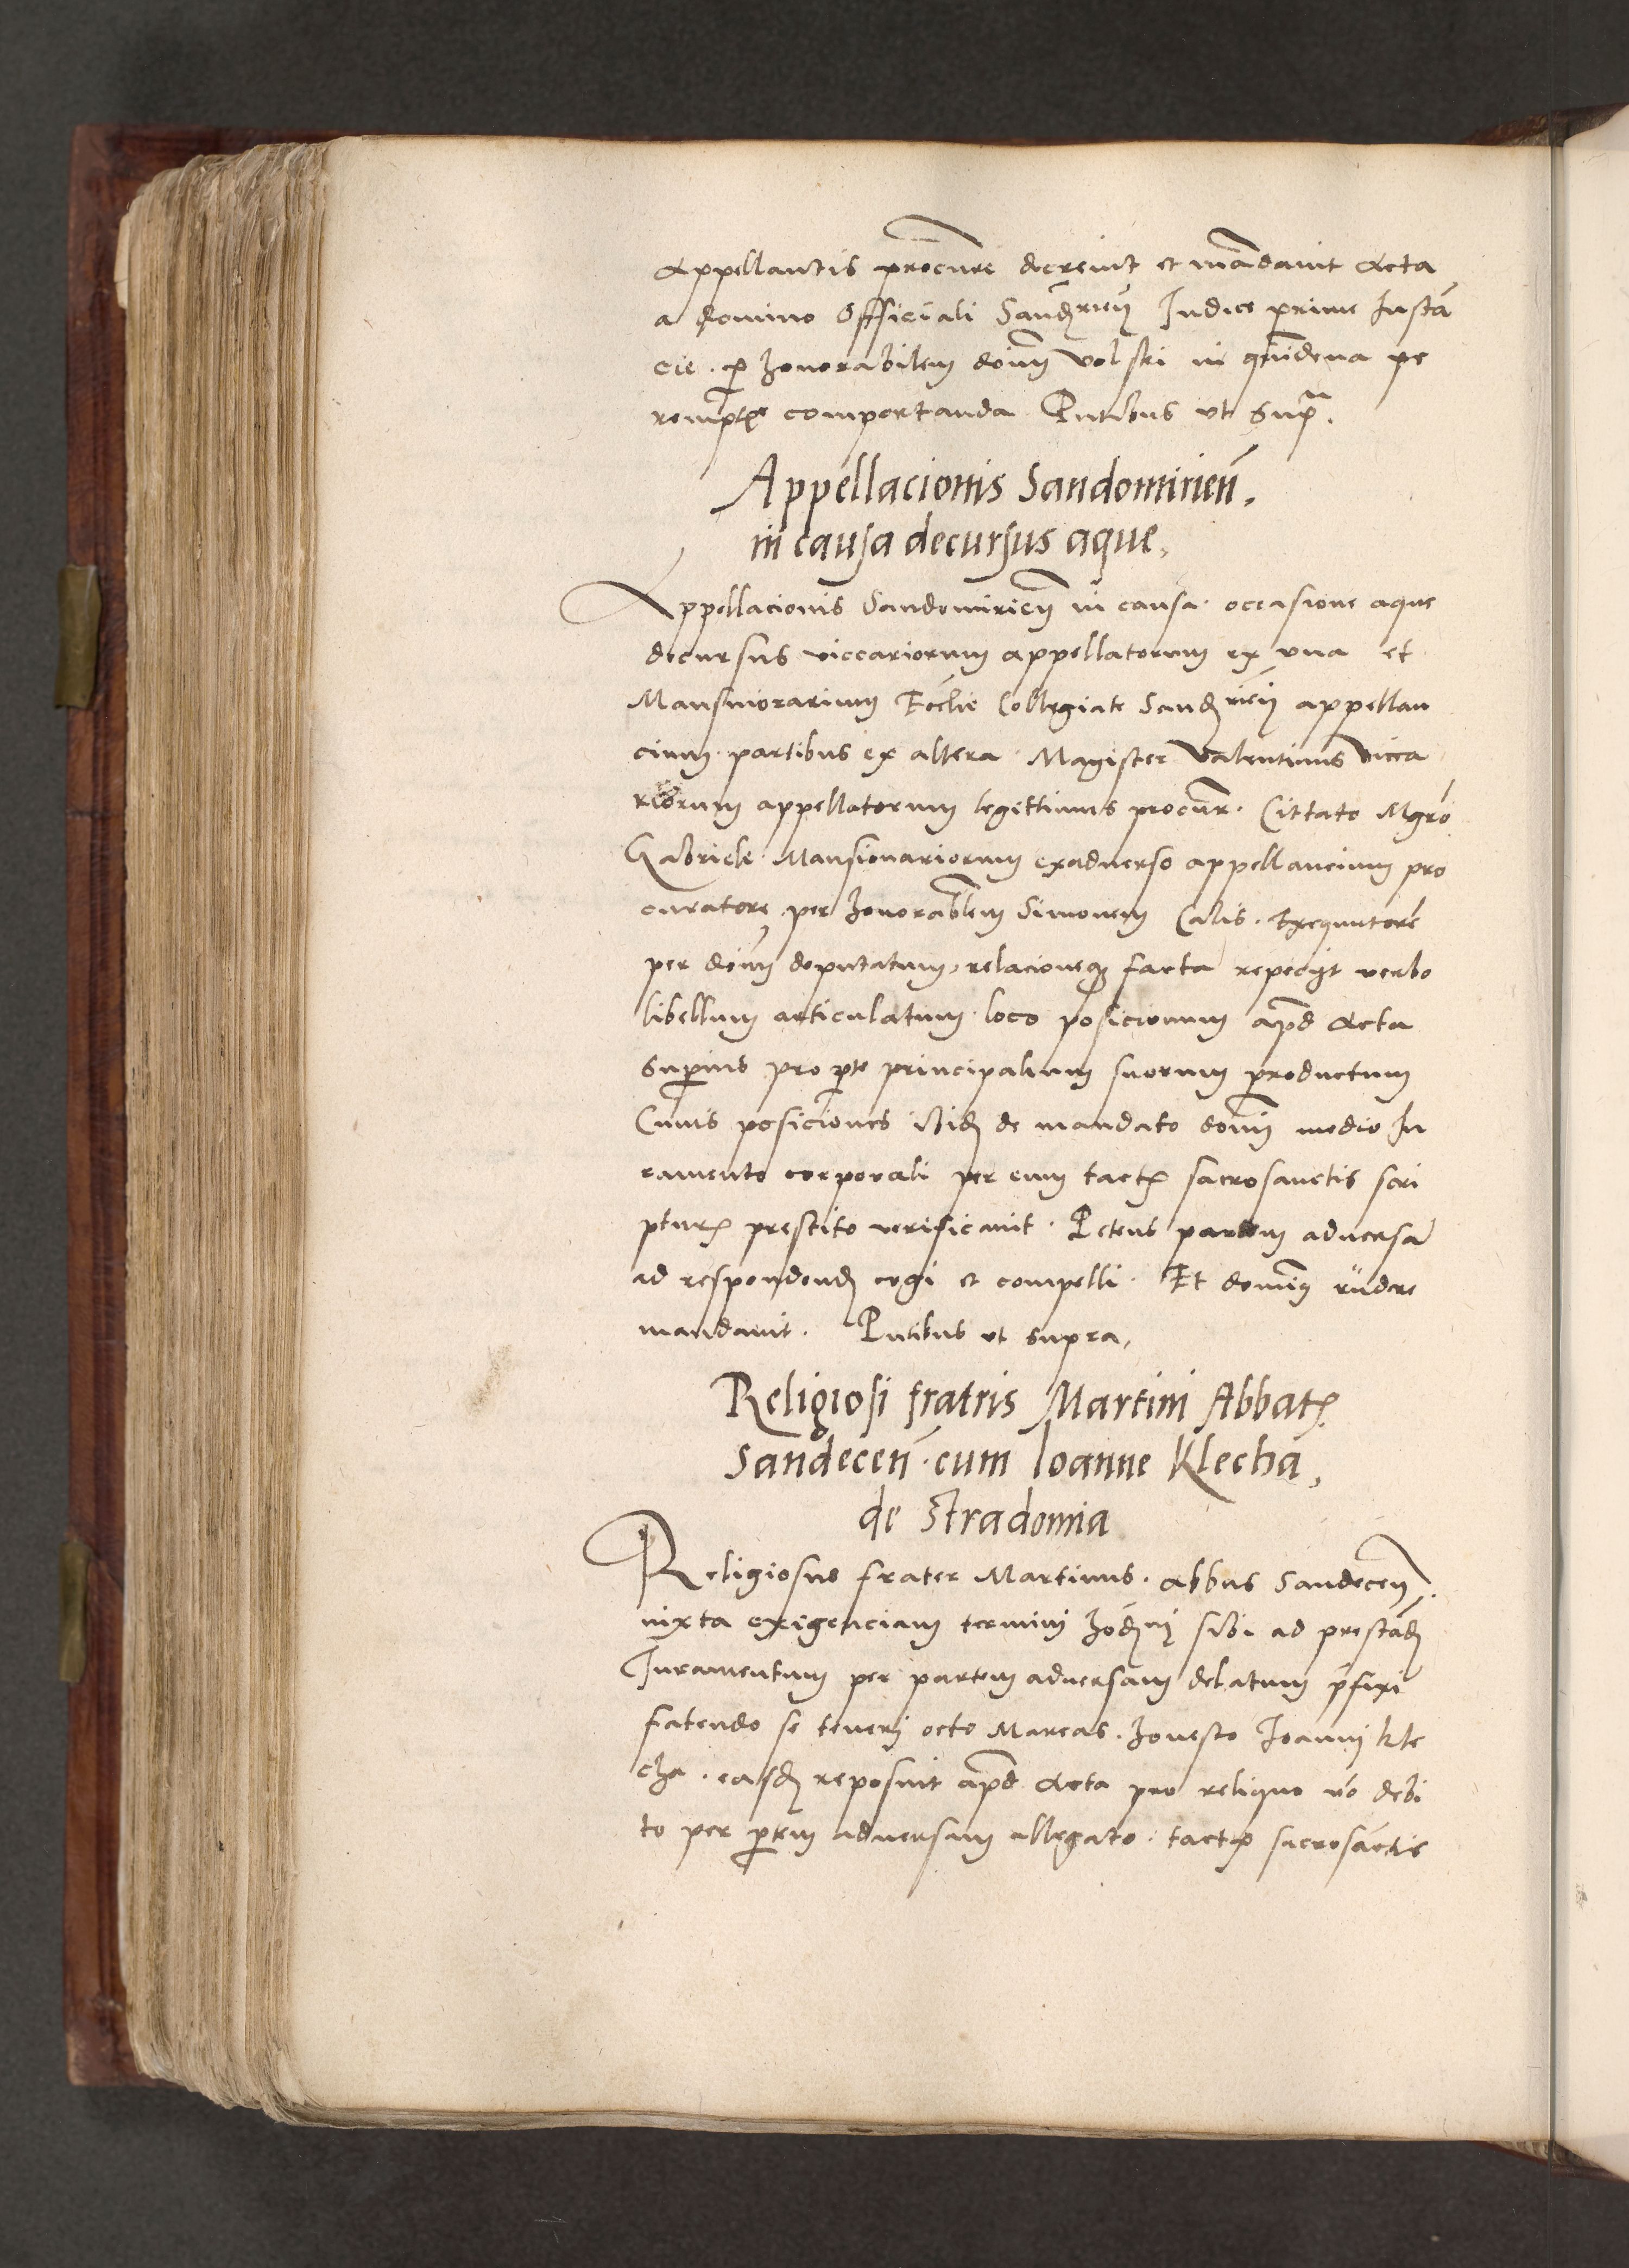 Appellantis procurē decreuit et mādauit Acta
a domino Officiali Sandrień Iudice prime Instā
cie . p honorabilem doīm Volski in quīdena pe
remptꝭ comportanda Pntibus vt supra.
Appellacionis Sandomirień.
in causa decursus aque.
Appellacionis Sandomirień in causa occasione aque
decursus viccariorum appellatorum ex vna et
Mansiorarium Ecclie Collegiate Sandrień appellan
cium partibus ex altera Magister Valentinus Vicca
riorum appellatorum legittimus procur̄. Cittato Mgrō
Gabriele Mansionariorum exaduerso appellancium pro
curatore per honorablem Simonem Calis. Exequutorē
per doīm deputatum, relacioneqꝫ facta repeciit verbo
libellum articulatum loco posicionum apud Acta
superius pro pte principalium suorum productum
Cuius posiciones ibidꝫ de mandato domī medio Iu
ramento corporali per eum tactꝭ sacrosanctis scri
pturꝭ prestito verificauit . Petens partem aduersā
ad respondendꝫ cogi et compelli . Et dominꝰ rn̄dere
mandauit . Pntibus vt supra,
Religiosi fratris Martini Abbatꝭ
Sandeceń cum Ioanne Klecha,
de Stradomia
Religiosus frater Martinus . Abbas Sandeceń.
iuxta exigenciam termini hodꝫni sibi ad prestādꝫ
Iuramentum per partem aduersam delatum p̄fixi
fatendo se teneri octo Marcas . honesto Ioanni Kle
cha . easdꝫ reposuit apud Acta pro reliquo vō debi
to per ptem aduersam allegato . tactꝭ sacrosāctis